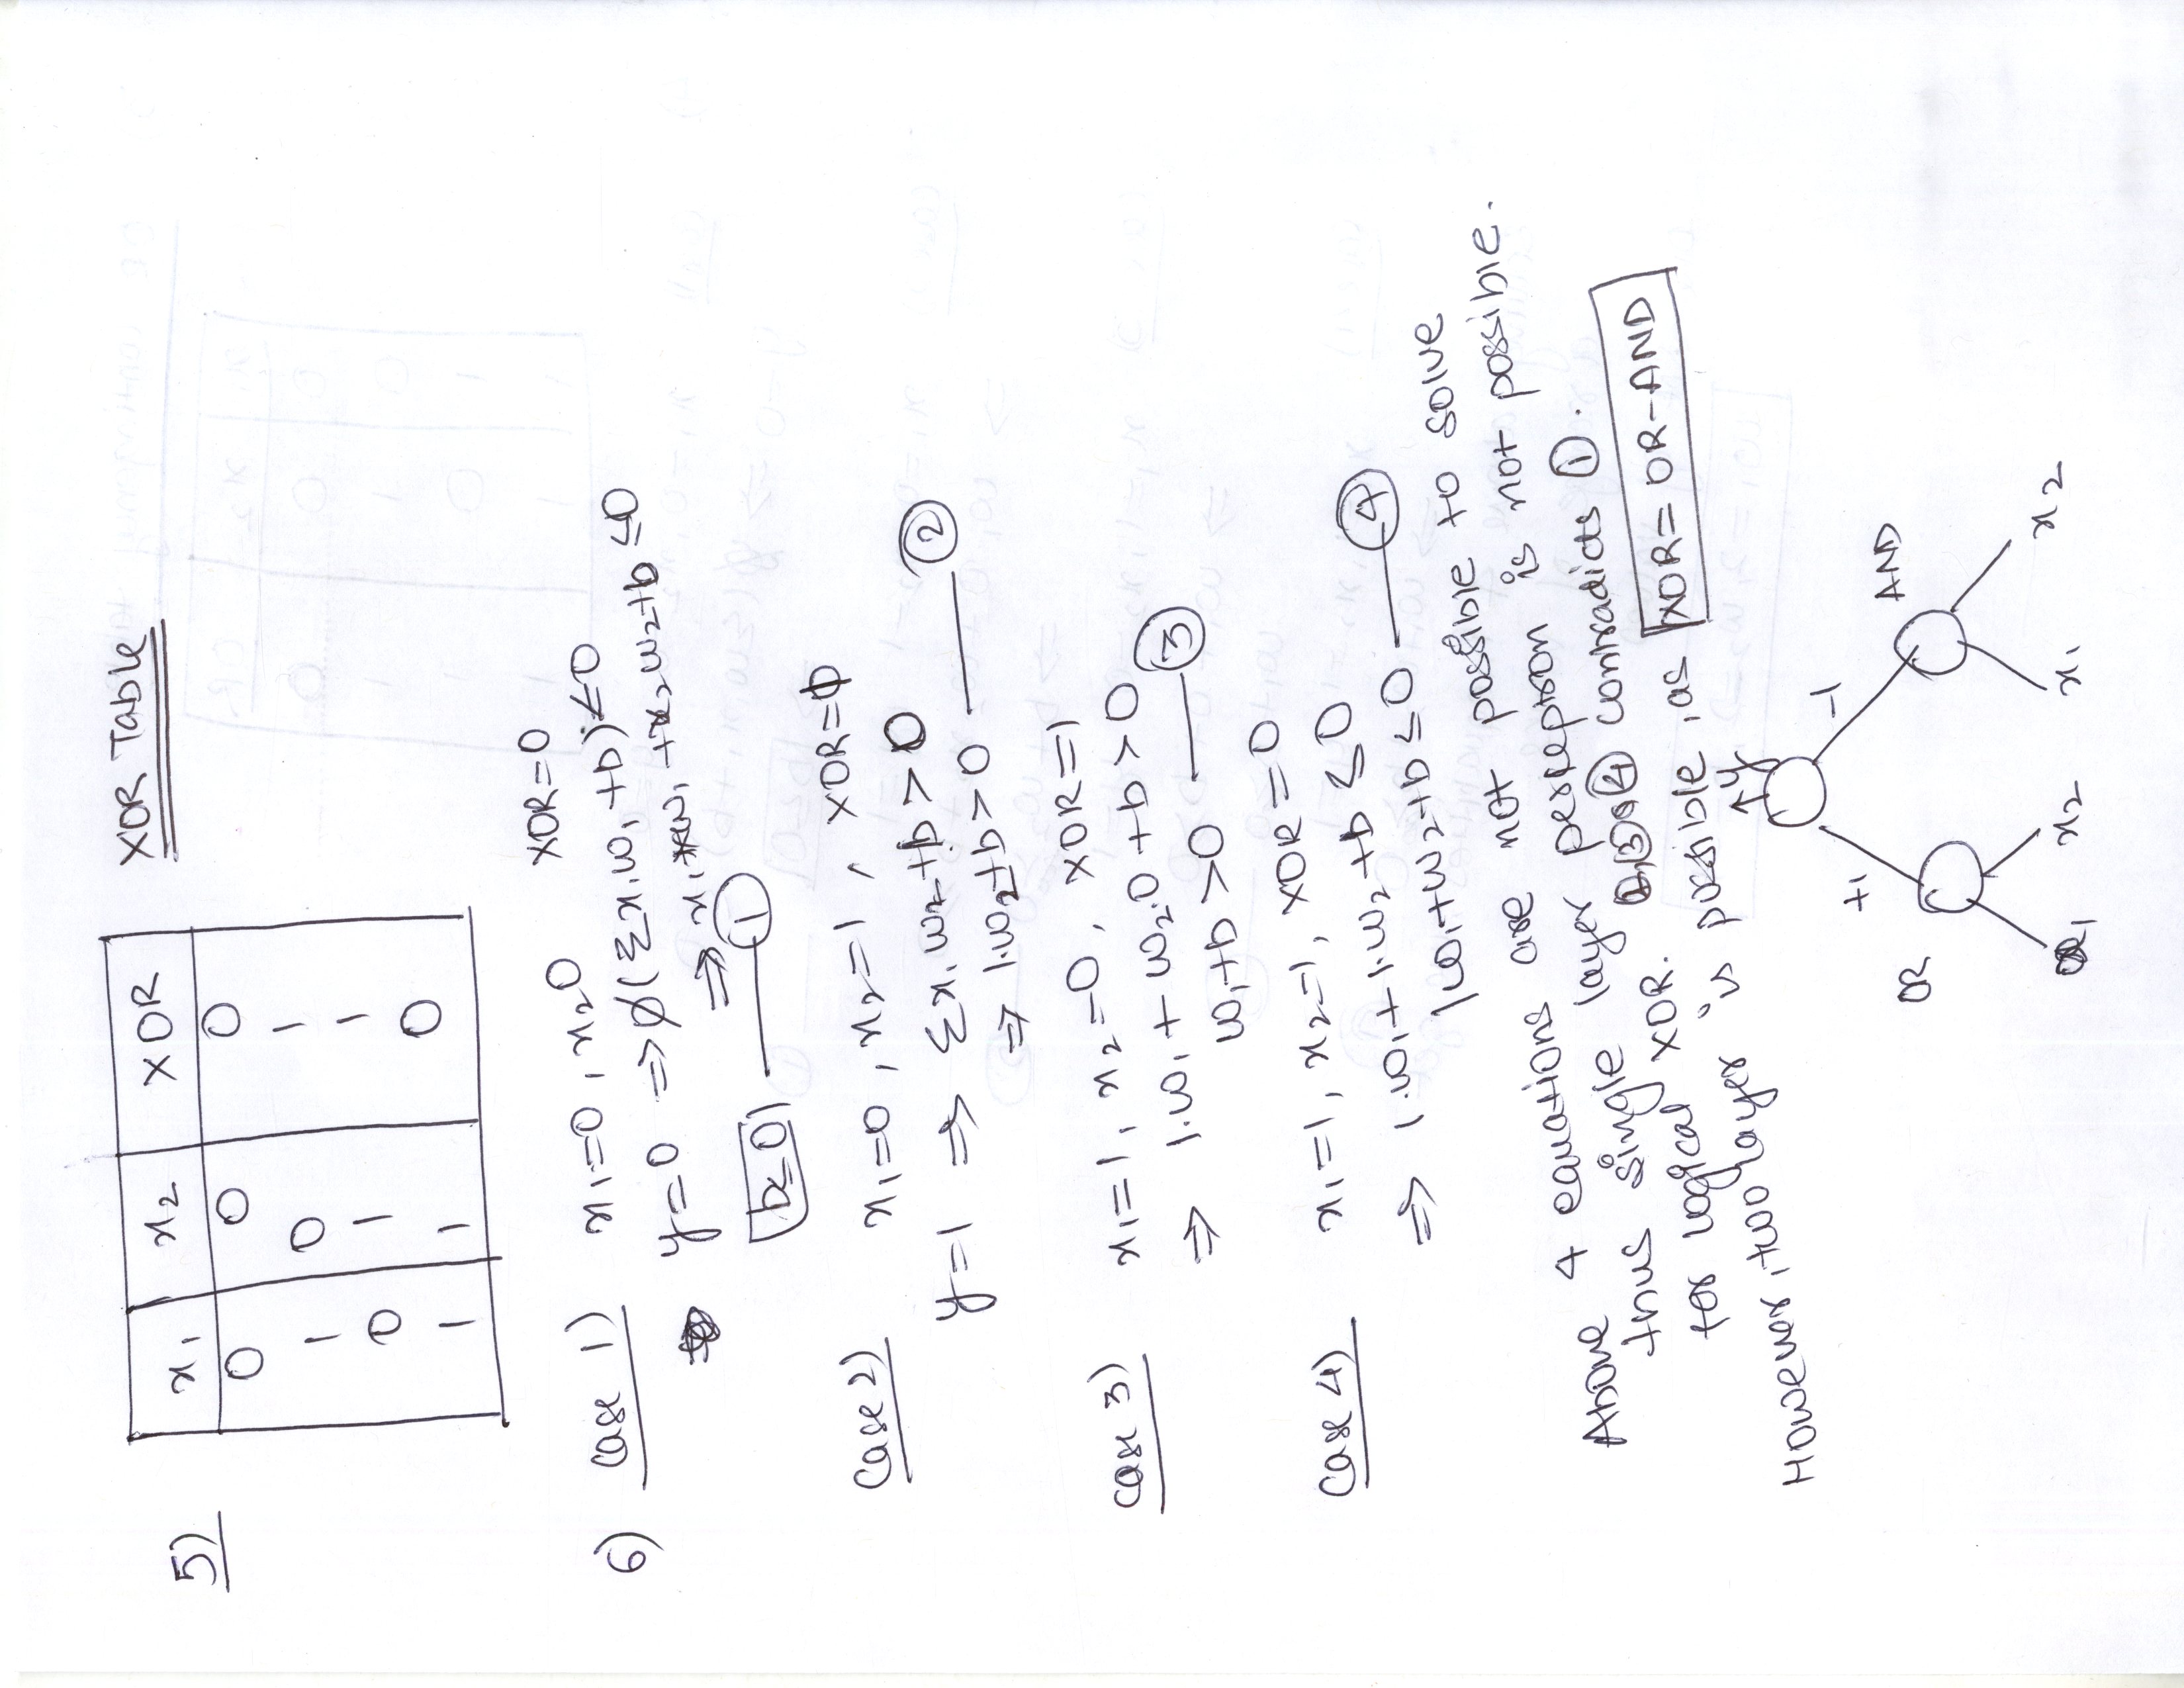 XOR Table
5)
x1 x2 XOR
0 0 0
1 0 1
0 1 1
1 1 0
6) Case 1) x1=0, x2 0 XOR=0
y=0 ⇒ ∅(Σx1.w1 +b)≤0
⇒ x1 w1 +x2 w2+b ≤0
b≤0 — ①
Case 2) x1=0, x2=1, XOR=
y=1 ⇒ Σx1.w2+b>0
⇒ 1.w2+b>0 — ②
Case 3) x1=1, x2=0, XOR=1
⇒ 1.w1 + w2.0 +b>0
w1+b>0 — ③
Case 4) x1=1, x2=1, XOR=0
⇒ 1.w1+1.w2+b ≤0
w1+w2+b≤0 — ④
Above 4 equations are not possible to solve
thus single layer perseptron is not possible.
for logical XOR. ③ ④ contradicts ①.
However, two layer is possible as XOR= OR-AND
y
+1 -1
OR AND
x2 x1 x2